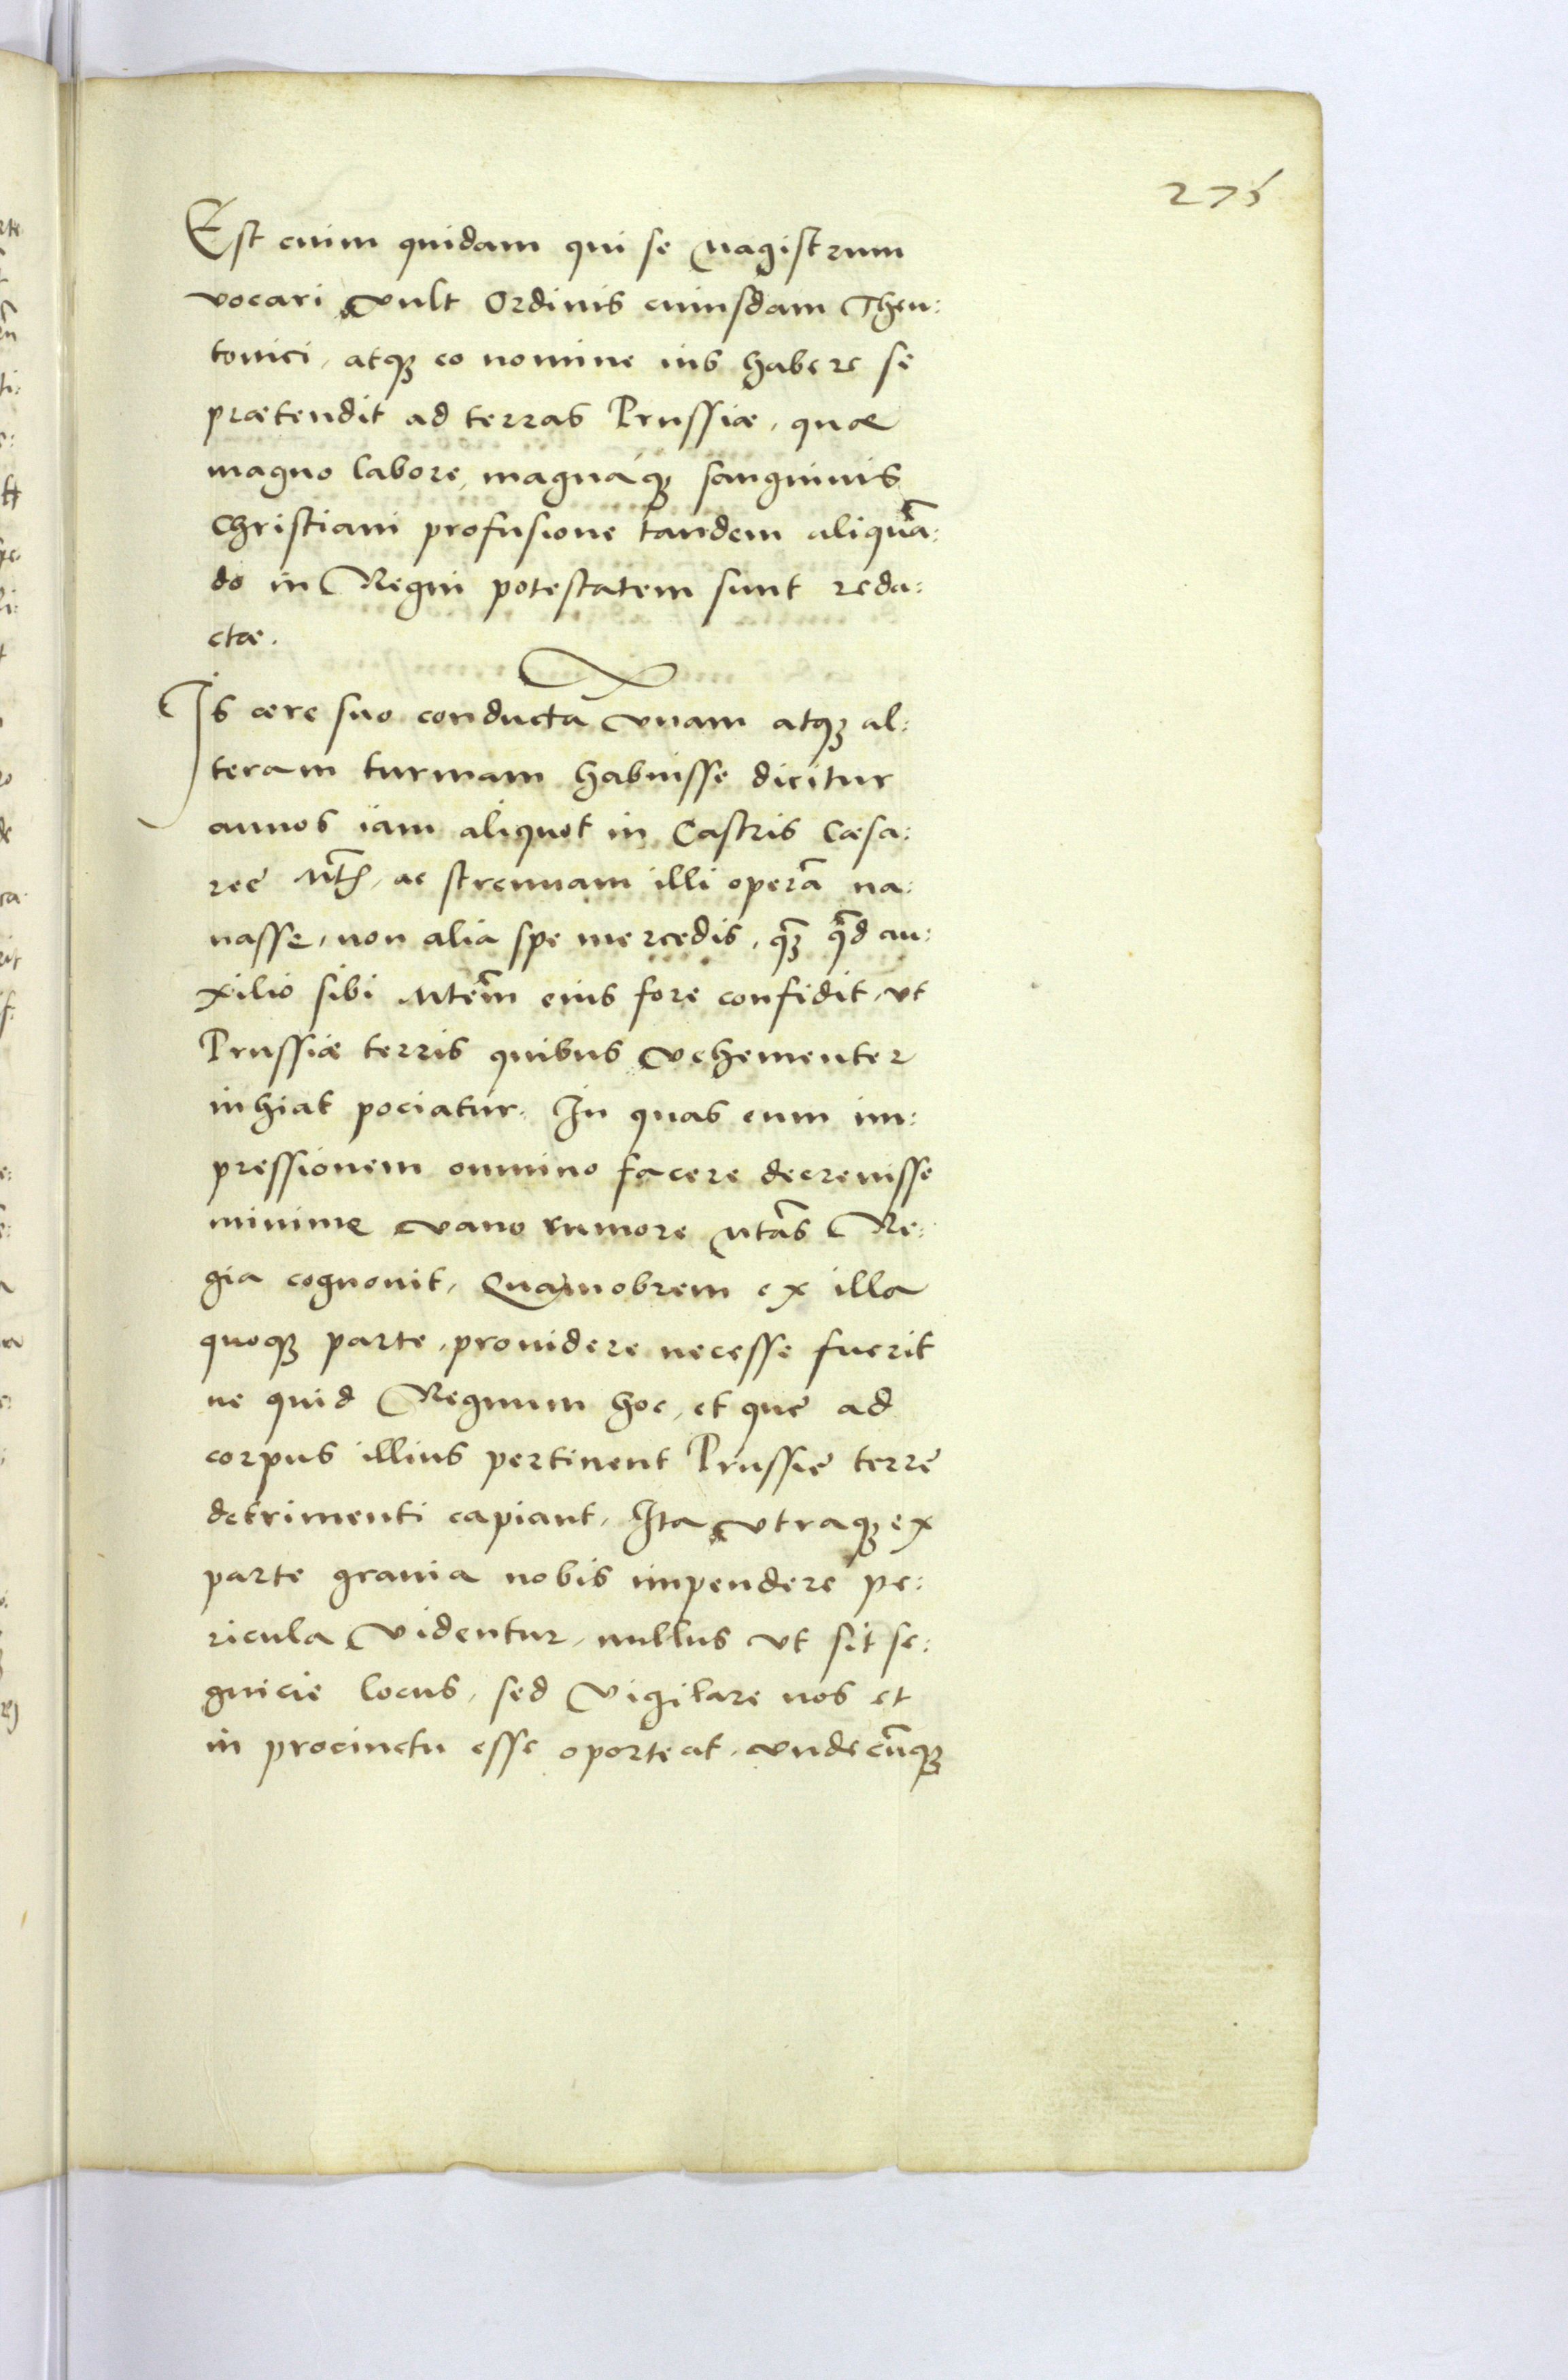 275
Est enim quidam qui se Magistrum
vocari vult Ordinis cuiusdam Theu:
tonici, atqꝫ eo nomine ius habere se
prætendit ad terras Prussiæ, quæ
magno labore, magnáqꝫ sanguinis
Christiani profusione tandem aliquã:
do in Regni potestatem sunt reda:
ctæ.
Is ære suo conductã vnam atqꝫ al:
teram turmam habuisse dicitur
annos iam aliquot in Castris Cæsa:
reę Mtis, ac strenuam illi operã na:
uasse, non alia spe mercedis, qꝫ̃ qđ au:
xilio sibi Mtem̃ eius fore confidit, vt
Prussiæ terris quibus vehementer
inhiat pociatur. In quas eum im:
pressionem omnino facere decreuisse
minime vano rumore Mtãs Re:
gia cognouit, Quamobrem ex illa
quoqꝫ parte, prouidere necesse fuerit
ne quid Regnum hoc, et quę ad
corpus illius pertinent Prussię terrę
detrimenti capiant, Ita vtraqꝫ ex
parte grauia nobis impendere pe:
ricula videntur, nullus vt sit se:
gnicię locus, sed vigilare nos et
in procinctu esse oporteat, vndecũqꝫ